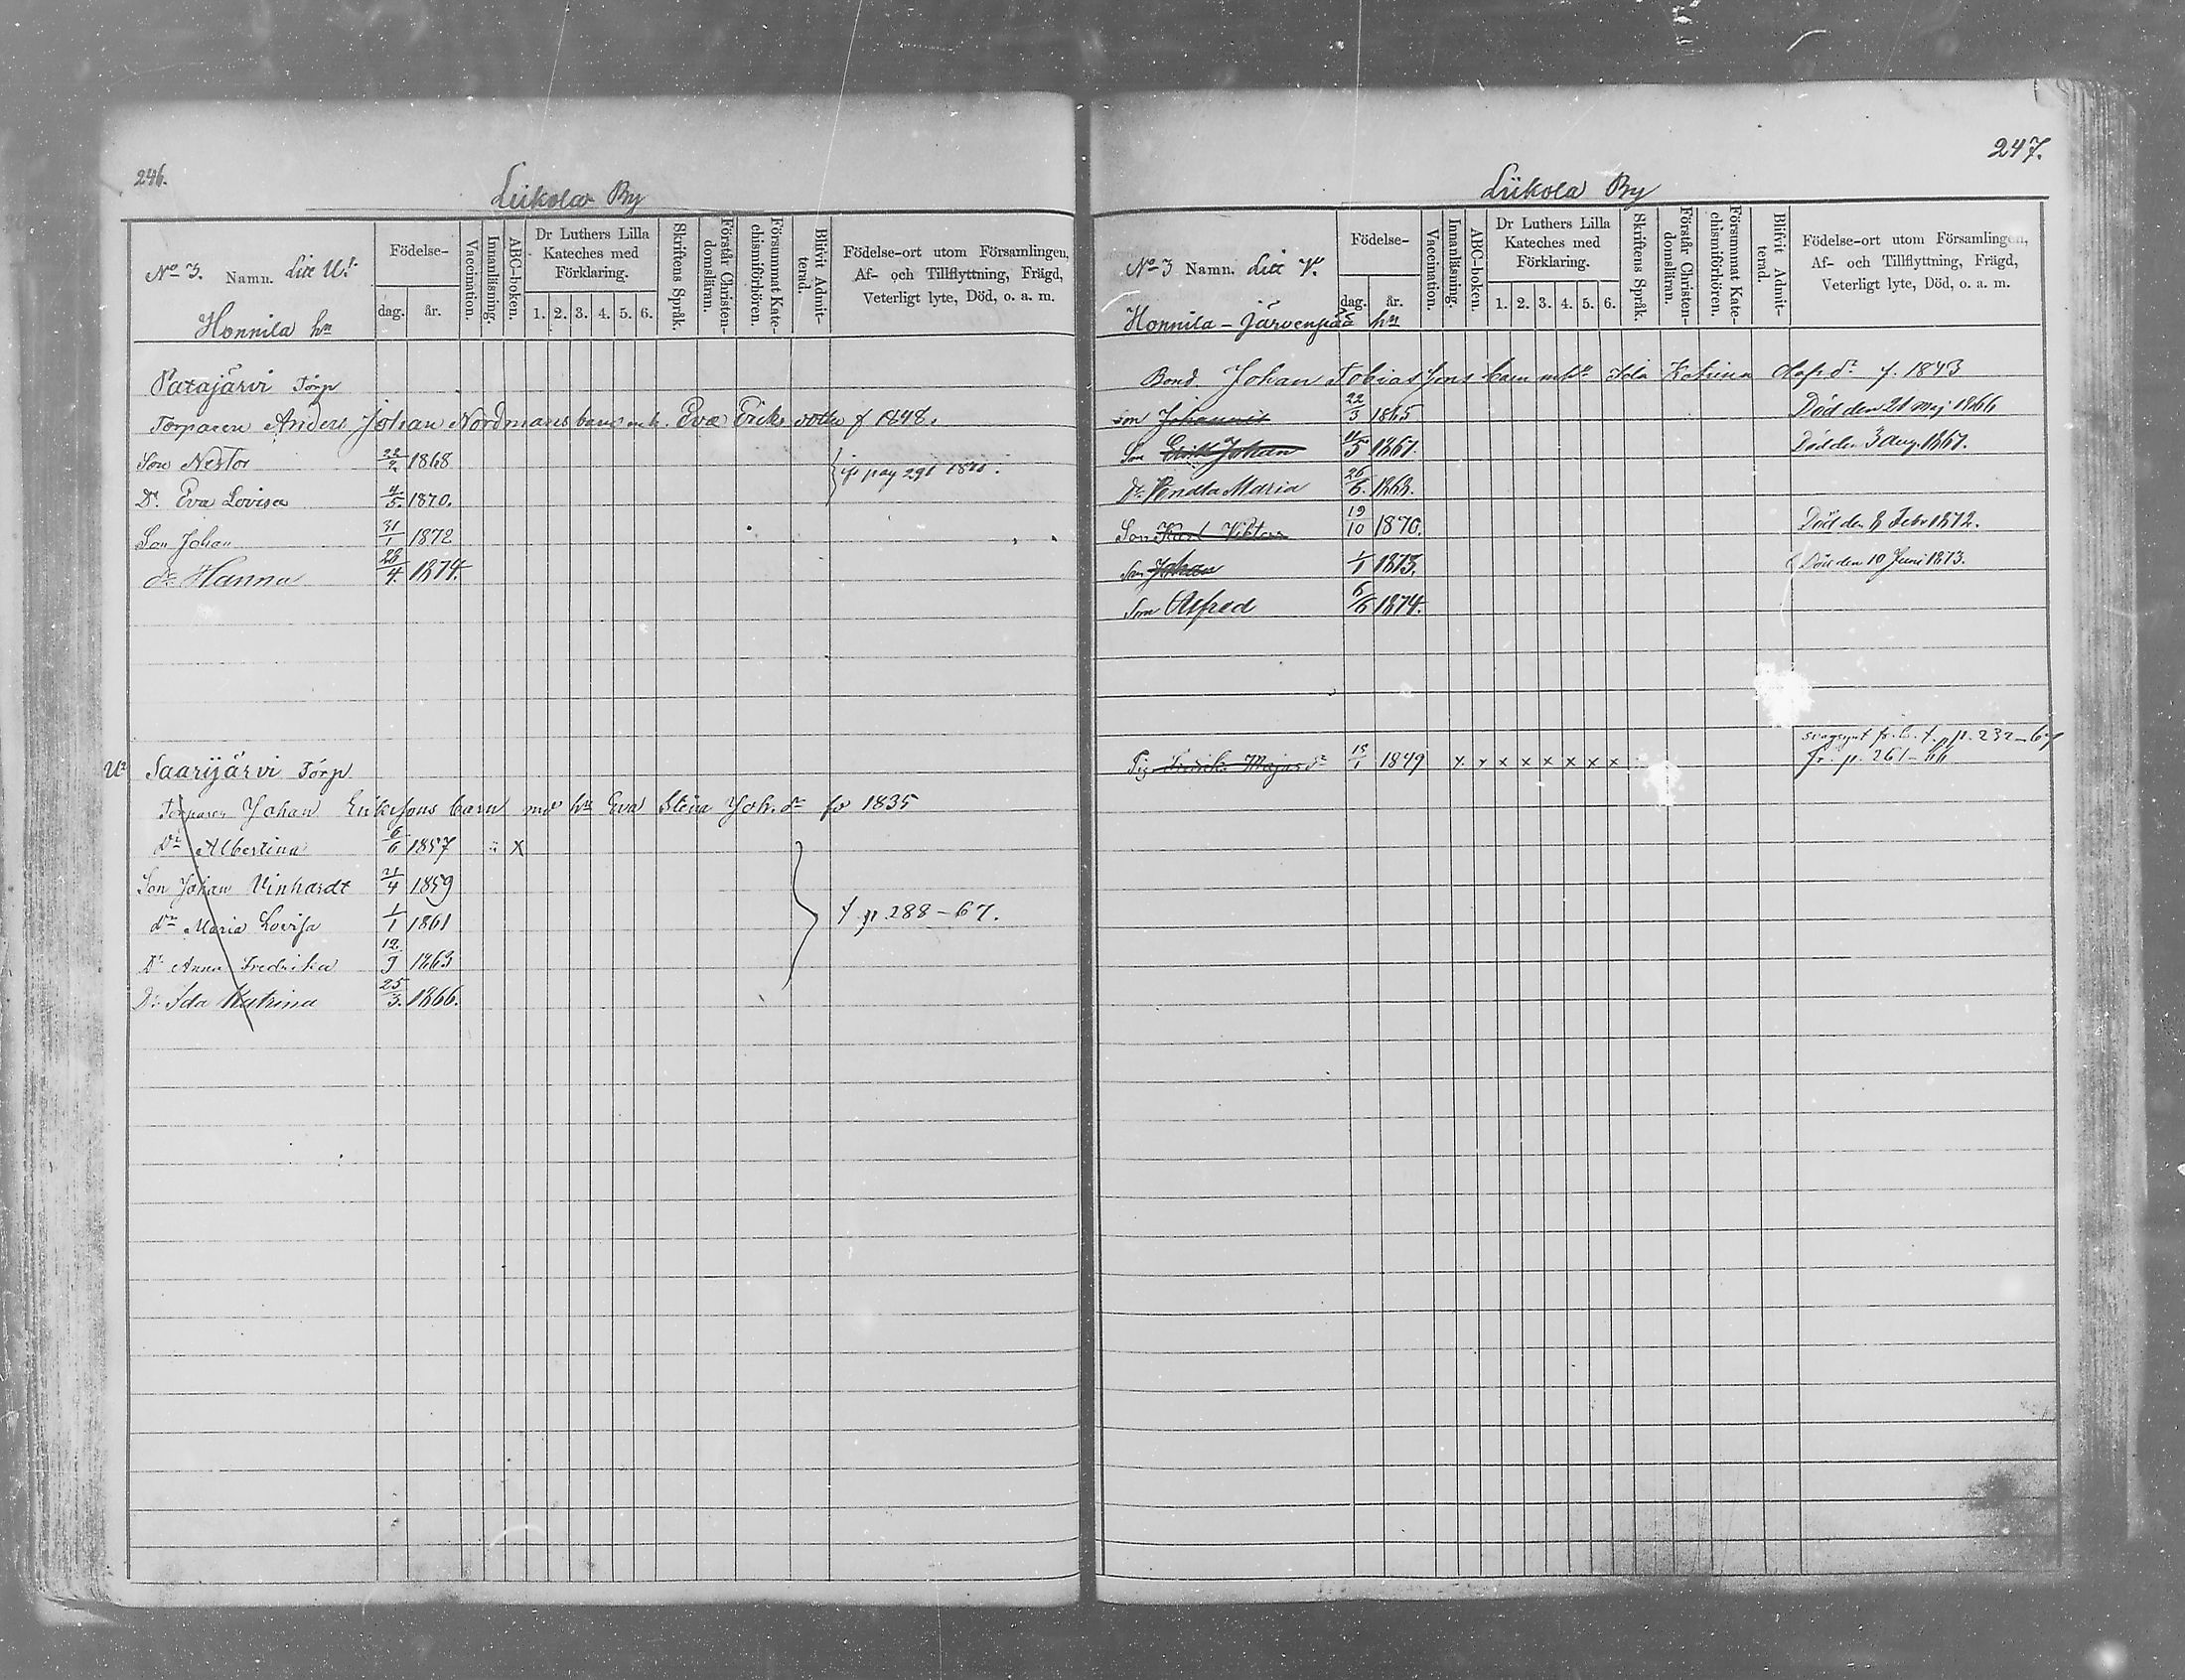 246.
Liikola By
No 3. Namn. Litt U1.
Honnila hn
Födelse-
dag. år.
Vaccination.
Innanläsning.
ABC-boken.
Dr Luthers Lilla Kateches med Förklaring.
1. 2. 3. 4. 5. 6.
Skriftens Språk.
Förstår Christen-domsläran.
Försummat Kate-chismiförhören.
Blifvit Admit-terad.
Födelse-ort utom Församlingen, Af- och Tillflyttning, Frägd, Veterligt lyte, Död, o. a. m.
Patajärvi Torp
Torparen Anders Johan Nordmans barn m. h. Eva Eriks dotter f 1848.
Son Nestor 22/2 1868
Dr. Eva Lovisa 4/5. 1870. pag 291 1870.
Son Johan 31/1 1872
dr Hanna 28/4. 1874.
U2 Saarijärvi Torp
Torparen Johan Erikssons barn med hu Eva Stina Joh. dr fö 1835
Dr Albertina 6/6 1857 x
Son Johan Vinhardt 21/4 1859
dr Maria Lovisa 1/1 1861 f p 288-67.
Dr Anna Fredrika 12/9 1863
Dr Ida Katrina 25/3. 1866.
247.
Liikola By
No 3 Namn. Litt V.
Honnila-Järvenpää hn
Födelse-
dag. år.
Vaccination.
Innanläsning.
ABC-boken.
Dr Luthers Lilla Kateches med Förklaring.
1. 2. 3. 4. 5. 6.
Skriftens Språk.
Förstår Christen-domsläran.
Försummat Kate-chismiförhören.
Blifvit Admit-terad.
Födelse-ort utom Församlingen, Af- och Tillflyttning, Frägd, Veterligt lyte, Död, o. a. m.
Bond. Johan Tobiassons barn m hu Ida Katrina Olofs dr f. 1843
Son Johannes 22/3 1865 Död den 21 Maj 1866
Son Erik Johan 11/5 1867. Död den 3 Aug. 1867.
Dr Vendla Maria 26/6. 1868.
Son Karl Viktor 19/10 1870. Död den 8 Febr 1872.
Son Johan 1/1 1873. Död den 10 Juni 1873.
Son Alfred 6/6 1874.
svagsynt p. 232-67
Pig. Fredrika Majas dr 15/1 1849 x x x x x x x x fr. p. 261-66